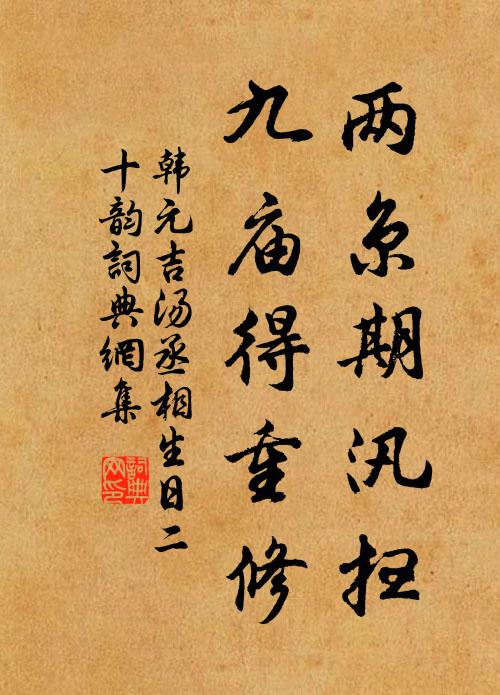 两京期汛扫
九庙得重修
韩元吉汤丞相生日二
十韵词典網集
詞典
网印